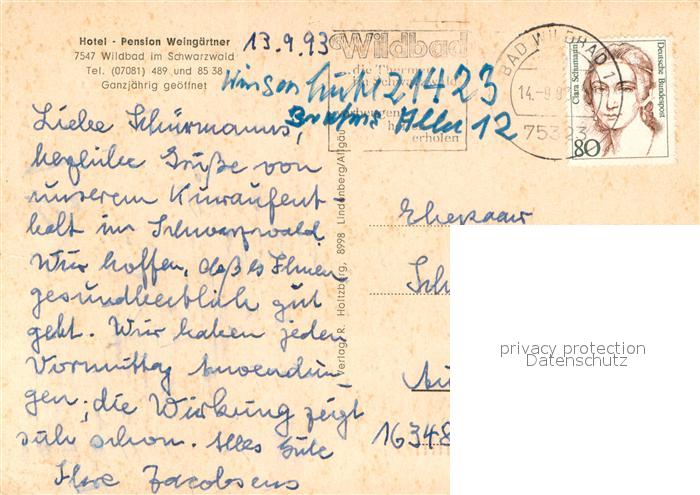 Hotel - Pension Weingärtner
7547 Wildbad im Schwarzwald
Tel. (07081) 489 und 85 38
Ganzjährig geöffnet
13.9.93
Wildbad
die Thermen
erholen
Winsen Luhe 21423
Brahms Allee 12
BAD WILDBAD 1
14.-9.9
75323
Deutsche Bundespost
Clara Schumann
80
Liebe Schürmanns,
herzliche Grüße von
unserem Kuraufent-
halt im Schwarzwald.
Wir hoffen, daß es Ihnen
gesundheitlich gut
geht. Wir haben jeden
Vormittag Anwendun-
gen; die Wirkung zeigt
sich schon. Alles Gute
Ihre Jacobsens
Verlag R. Holtzberg, 8998 Lindenberg/Allgäu
Ehepaar
Sch
16348
privacy protection
Datenschutz